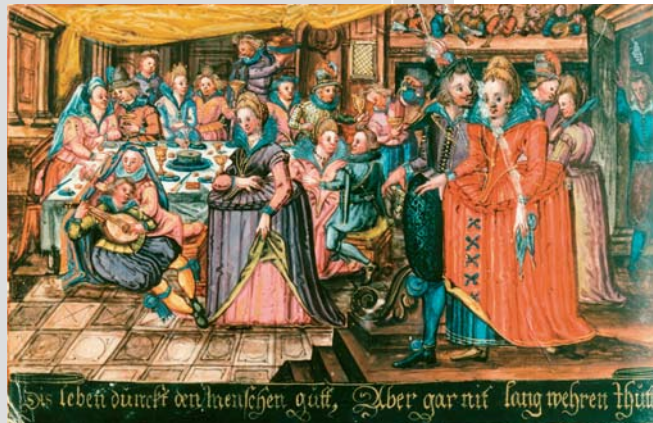 Dis leben dünckt den menschen gütt, Aber gar nit lang wehren thutt